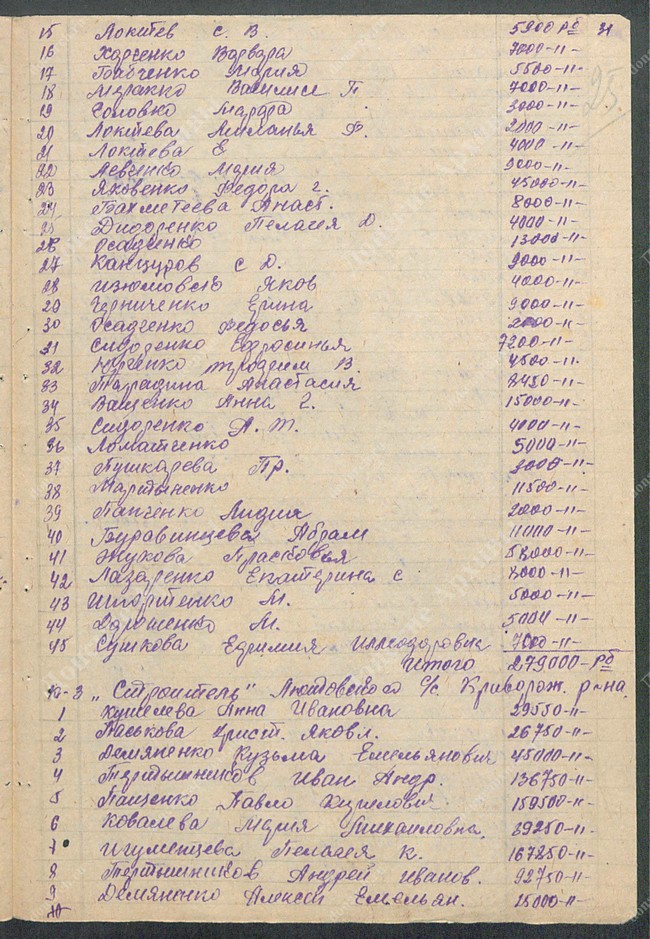 31
25.
15 Локтев С. В. 5900 рб
16 Харченко Варвара 7000-"-
17 Бабченко Мария 5500-"-
18 Василиса П 7000-"-
19 Головко Марфа 3000-"-
20 Локтева Миланья Ф. 2000-"-
21 Локтева Е 4000-"-
22 Левченко Мария 9000-"-
23 Яковенко Федора г. 45000-"-
24 Бахметеева Анаст. 8000-"-
25 Дидоренко Пелагея Д. 4000-"-
26 Осадченко 13000-"-
27 Канцуров С Д. 9000-"-
28 Яков 4000-"-
29 Черниченко Ерина 9000-"-
30 Осадченко Федосья 2000-"-
31 Сидоренко Ефросинья 7200-"-
32 Юрченко В. 4500-"-
33 Анастасия 8450-"-
34 Ващенко Анна г. 15000-"-
35 Сидоренко А. Т. 4000-"-
36 Ломатченко 5000-"-
37 Пушкарева Пр. 3000-"-
38 Мартыненко 11500-"-
39 Панченко Лидия 2000-"-
40 Абрам 11000-"-
41 Жукова Прасковья 58000-"-
42 Лазаренко Екатерина с 8000-"-
43 М. 5000-"-
44 М. 5000-"-
45 Сушкова Ефимия 7000-"-
Итого 279000-рб
"Строитель" с/с. Криворож. р-на.
1 Анна Ивановна 29550-"-
2 Паськова Христ. Яковл. 26750-"-
3 Демяненко Кузьма Емельянович 45000-"-
4 Тертышников Иван Андр. 136750-"-
5 Пащенко Павло 159500-"-
6 Ковалева Мария Михаиловна, 39250-"-
7 Игуменцева Пелагея К. 167850-"-
8 Тертышников Андрей Иванов. 92750-"-
9 Демяненко Алексей Емельян. 15000-"-
10